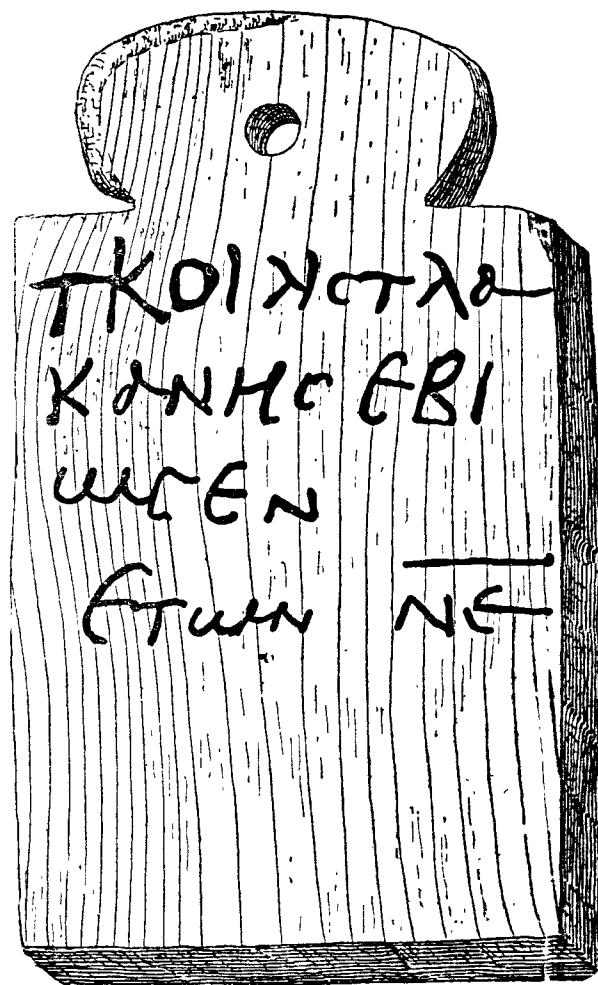 ΤΚΟΙΛΙϹΤΛΑ
ΚΑΝΗϹ ΕΒΙ
ωϹΕΝ
ΕΤωΝ Ν̅Ε̅